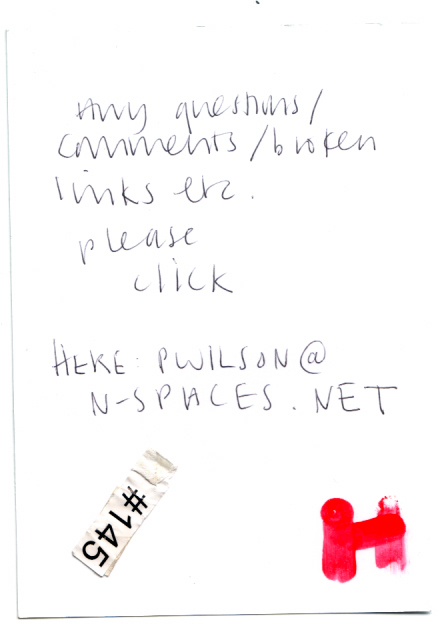 Any questions/
comments/broken
links etc.
please
click
HERE: PWILSON@
N-SPACES.NET
#145
H